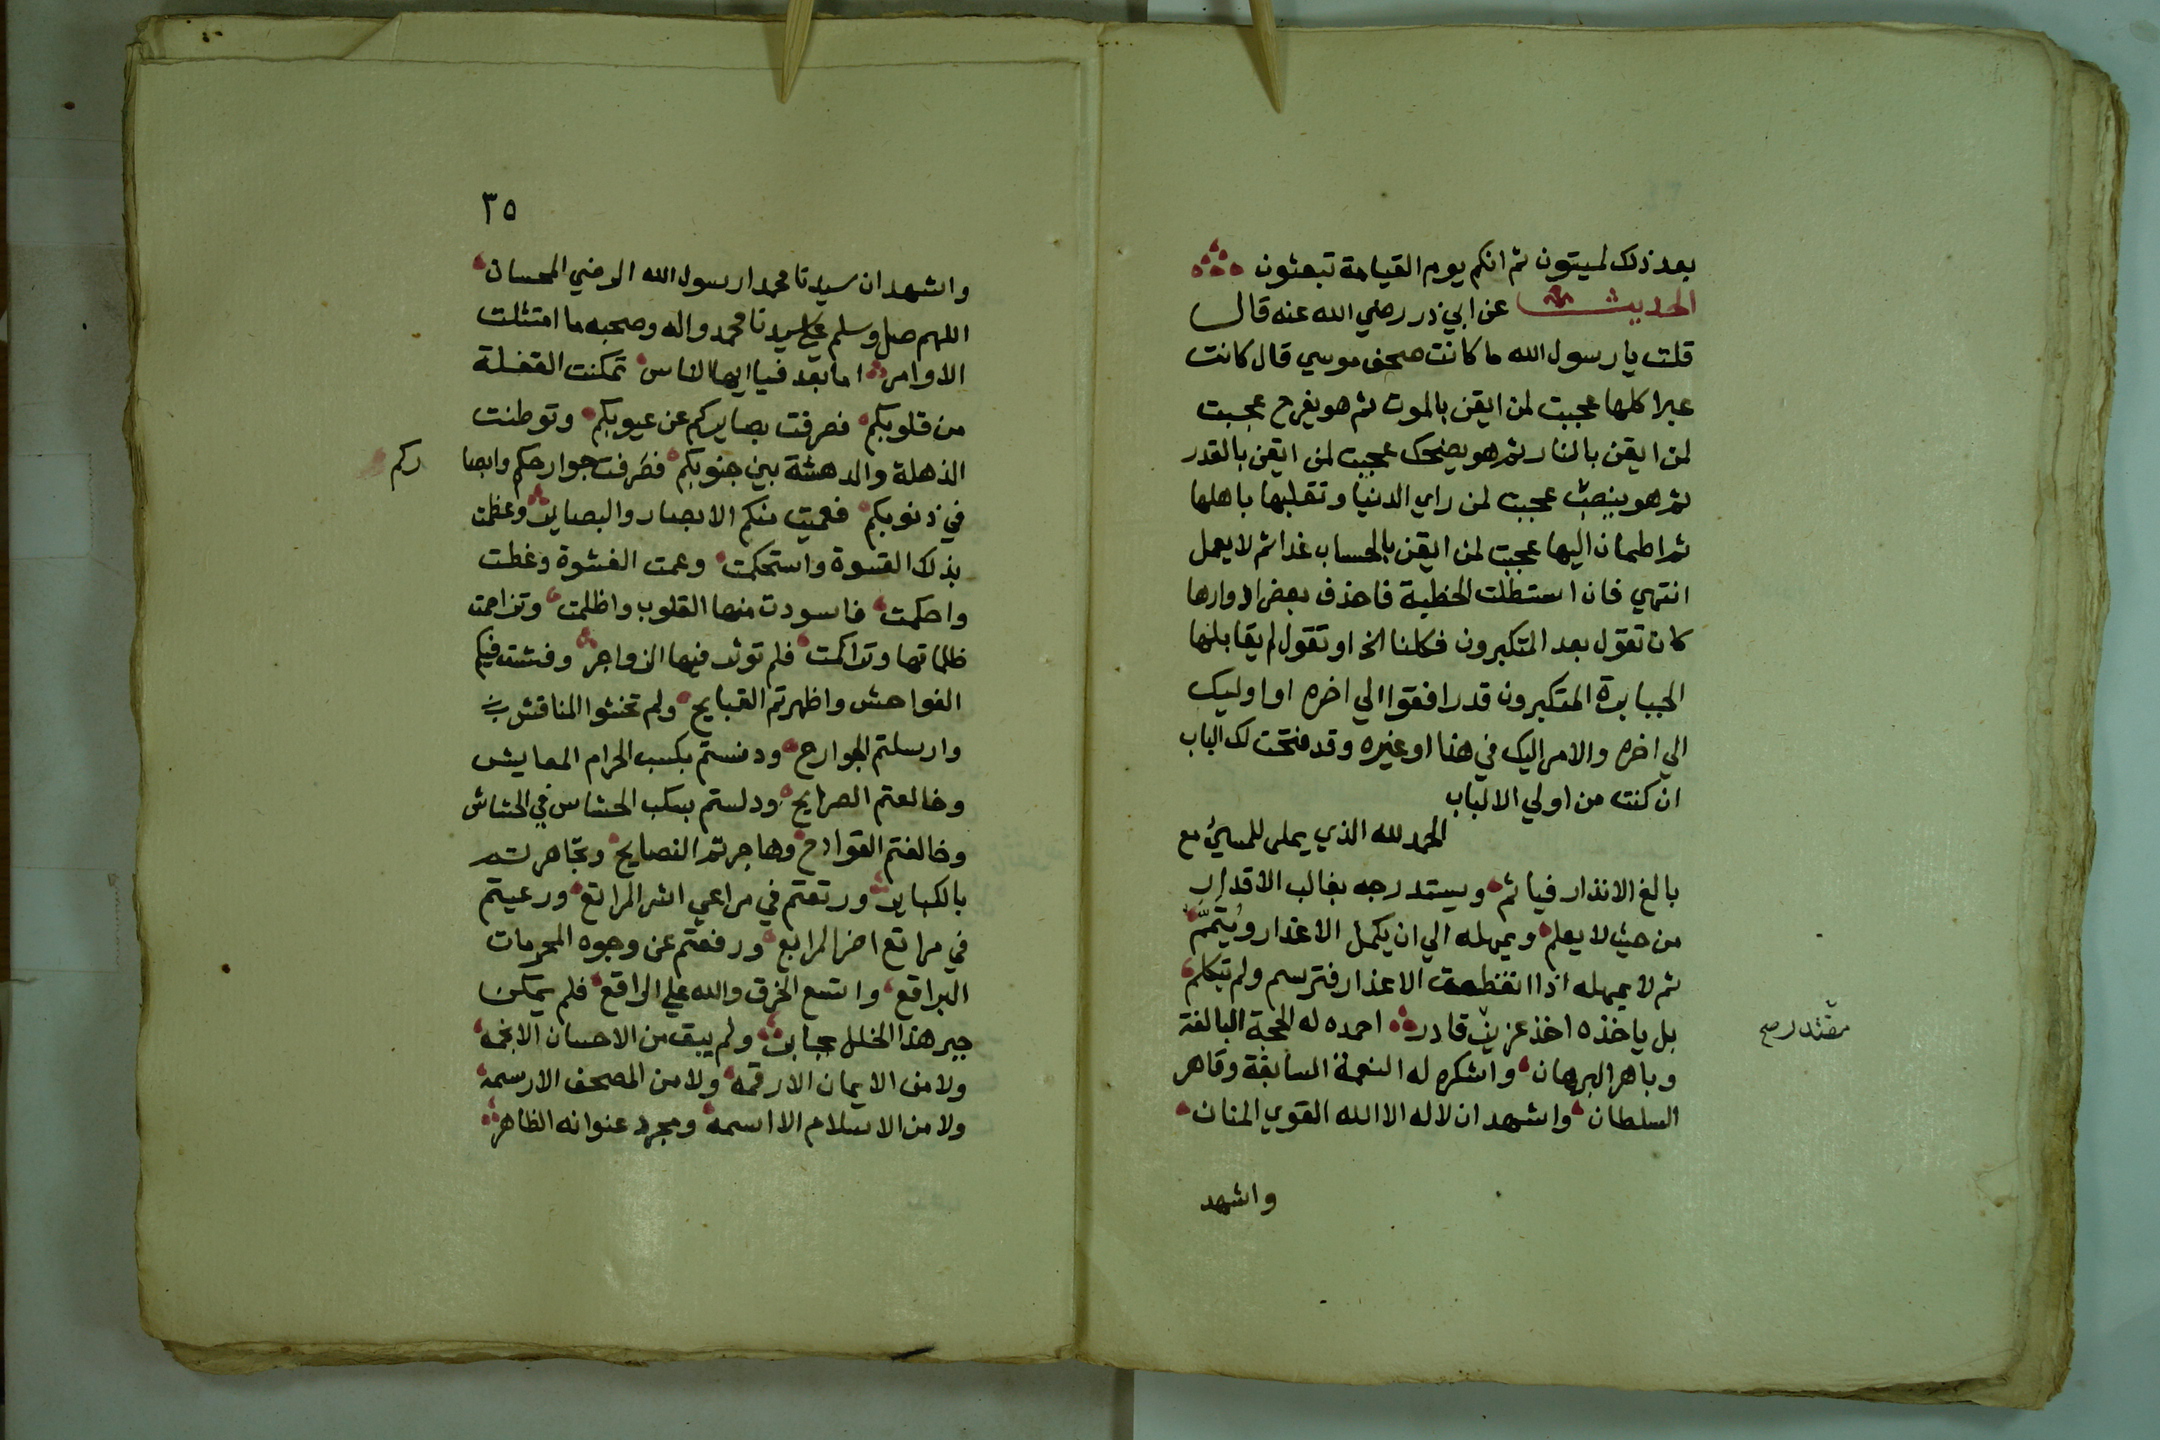 بعد ذلك لميتون ثم انكم يوم القيامة تبعثون
الحديث عن ابي ذر رضي الله عنه قال
قلت يا رسول الله ما كانت صحف موسي قال كانت
عبرا كلها عجبت لمن ايقن بالموت ثم هو يفرح عجبت
لمن ايقن بالنار ثم هو يضحك عجبت لمن ايقن بالقدر
ثم هو ينصب عجبت لمن راي الدنيا وتقلبها باهلها
ثم اطمان اليها عجبت لمن ايقن بالحساب غدا ثم لا يعمل
انتهي فان استطلت الخطبة فاحذف بعض ادوارها
كان تقول بعد المتكبرون فكلنا الخ او تقول لم يقابلها
الجبابرة المتكبرون قد رافقوا الي اخره او اوليك
الي اخره والامر اليك في هذا او غيره وقد فتحت لك الباب
ان كنت من اولي الالباب
الحمد لله الذي يملي للمسئ مع
بالغ الانذار فياثم ويستدرجه بغالب الاقدار
من حيث لا يعلم ويمهله الي ان يكمل الاعذار ويتمم
ثم لا يمهله اذا انقطعت الاعذار فترسم ولم تبكلم
بل ياخذه اخذ عزيز قادر احمده له الحجة البالغة
مقتدر صح
وباهر البرهان واشكره له النعمة السابغة وقاهر
السلطان واشهد ان لا اله الا الله القوي المنان
واشهد
٣٥
واشهد ان سيدنا محمدا رسول الله الرضي المحسان
اللهم صل وسلم علي سيدنا محمد واله وصحبه ما امتثلت
الاوامر اما بعد فيا ايها الناس تمكنت الغفلة
من قلوبكم فصرفت بصايركم عن عيوبكم وتوطنت
الذهلة والدهشة بين جنوبكم فصرفت جوارحكم وابصا
ركم
في ذنوبكم فعميت منكم الابصار والبصاير وعظمت
بذلك القسوة واستحكمت وعمت الغشوة وغطت
واحكمت فاسودت منها القلوب واظلمت وتزاحمت
ظلماتها وتراكمت فلم توثر فيها الزواجر وفشت فيكم
الفواحش واظهرتم القبايح ولم تخشوا المناقش
وارسلتم الجوارح ودنستم بكسب الحرام المعايش
وخالعتم الصرايح ودلستم بسكب الحشاس في الحشاش
وخالفتم القوادح وهاجرتم النصايح وتجاهرتم
بالكباير ورتعتم في مراعي اشر المراتع ورعيتم
في مراتع اضر المرابع ورفعتم عن وجوه المحرمات
البراقع واتسع الخرق والله علي الراقع فلم يمكن
جبر هذا الخلل بجابر ولم يبق من الاحسان الا
ولا من الايمان الا رقمه ولا من المصحف الا رسمه
ولا من الاسلام الا اسمه ومجرد عنوانه الظاهر